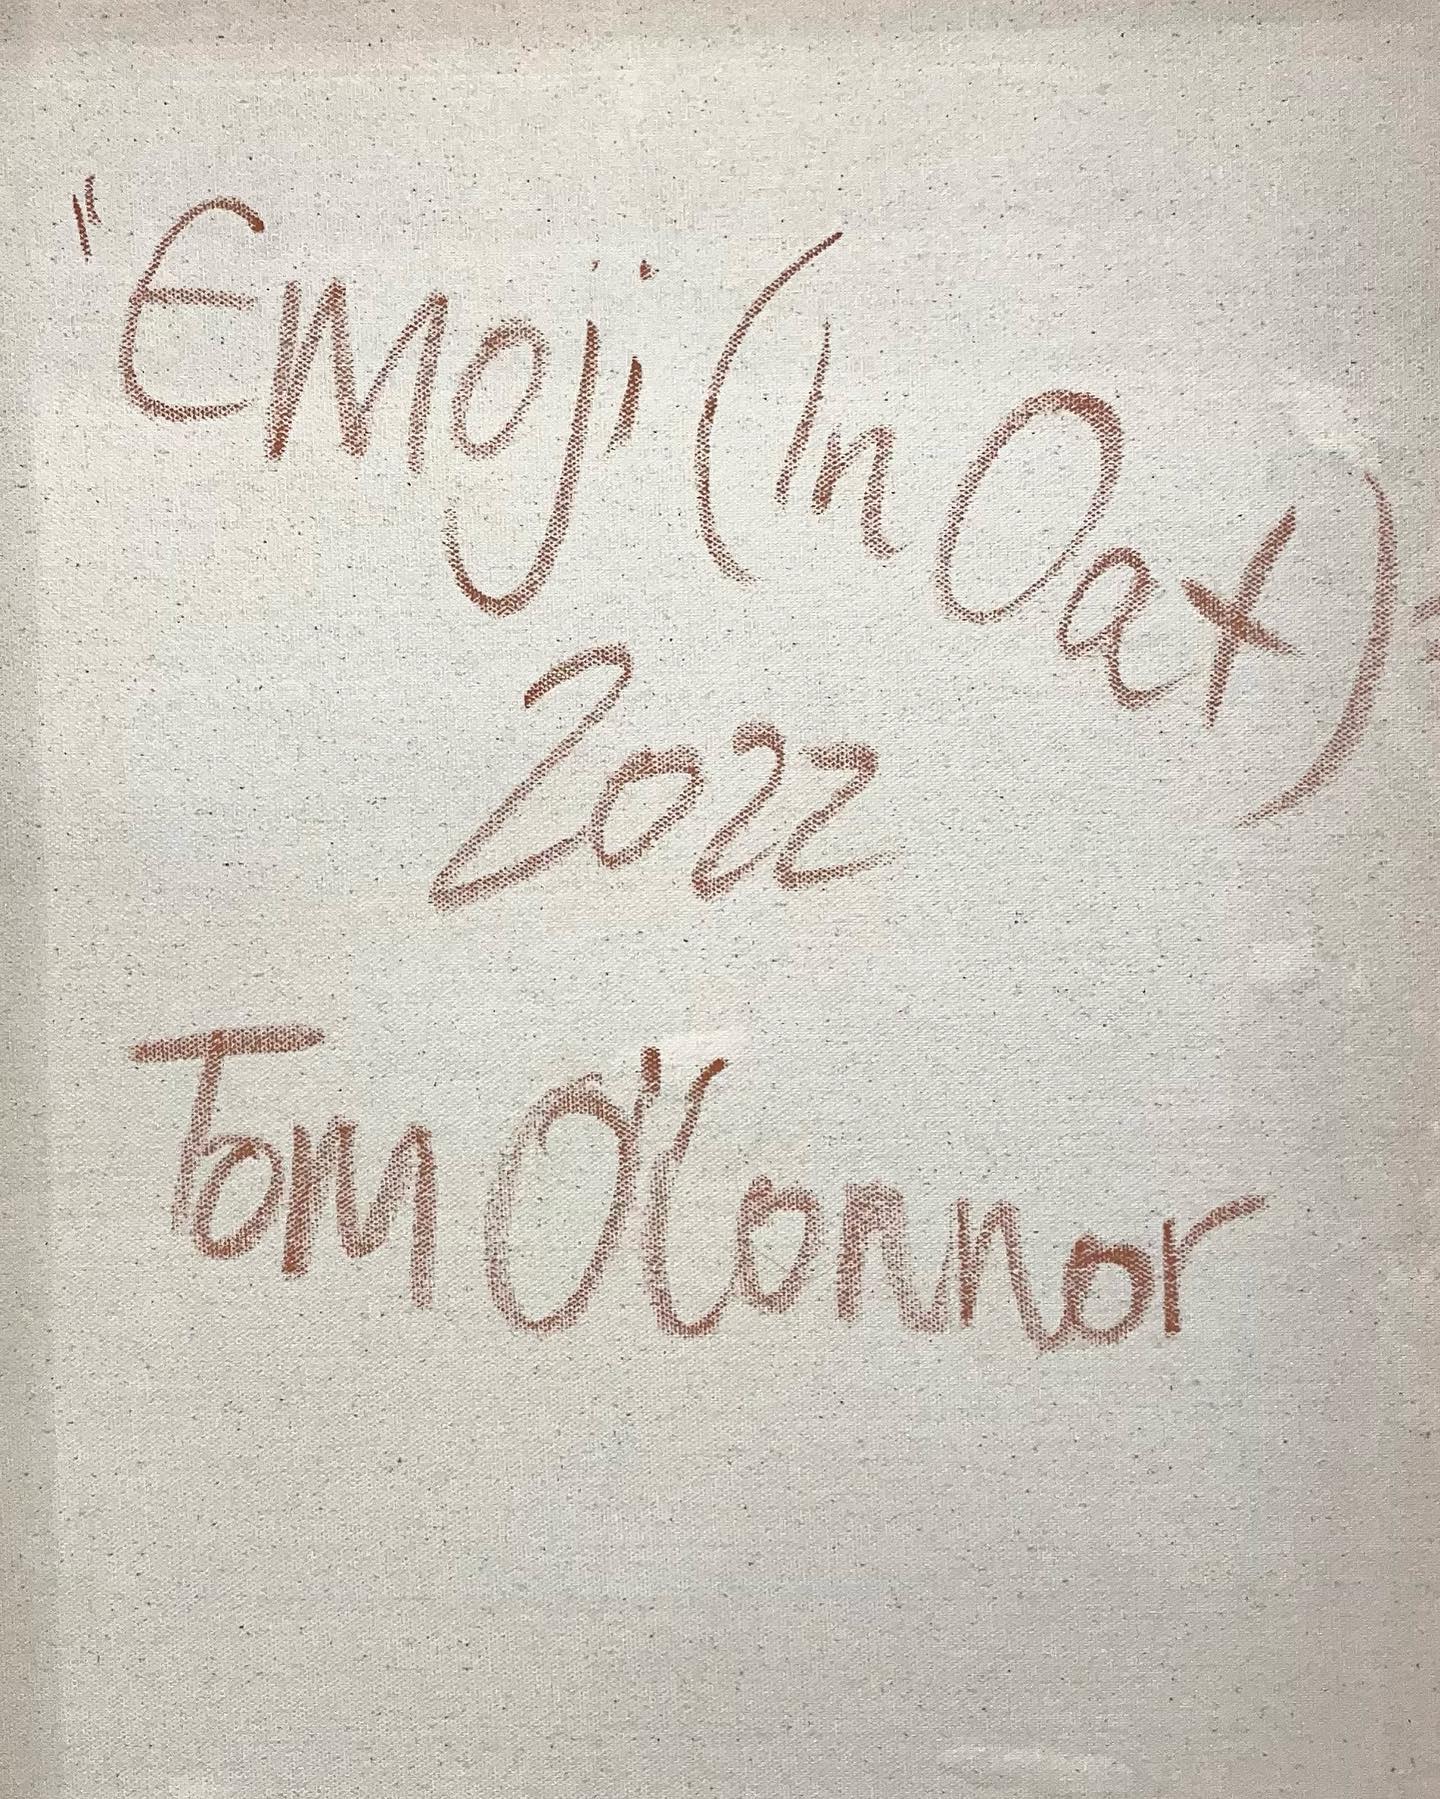 "Emoji (In Oax)"
2022
Tom O'Connor